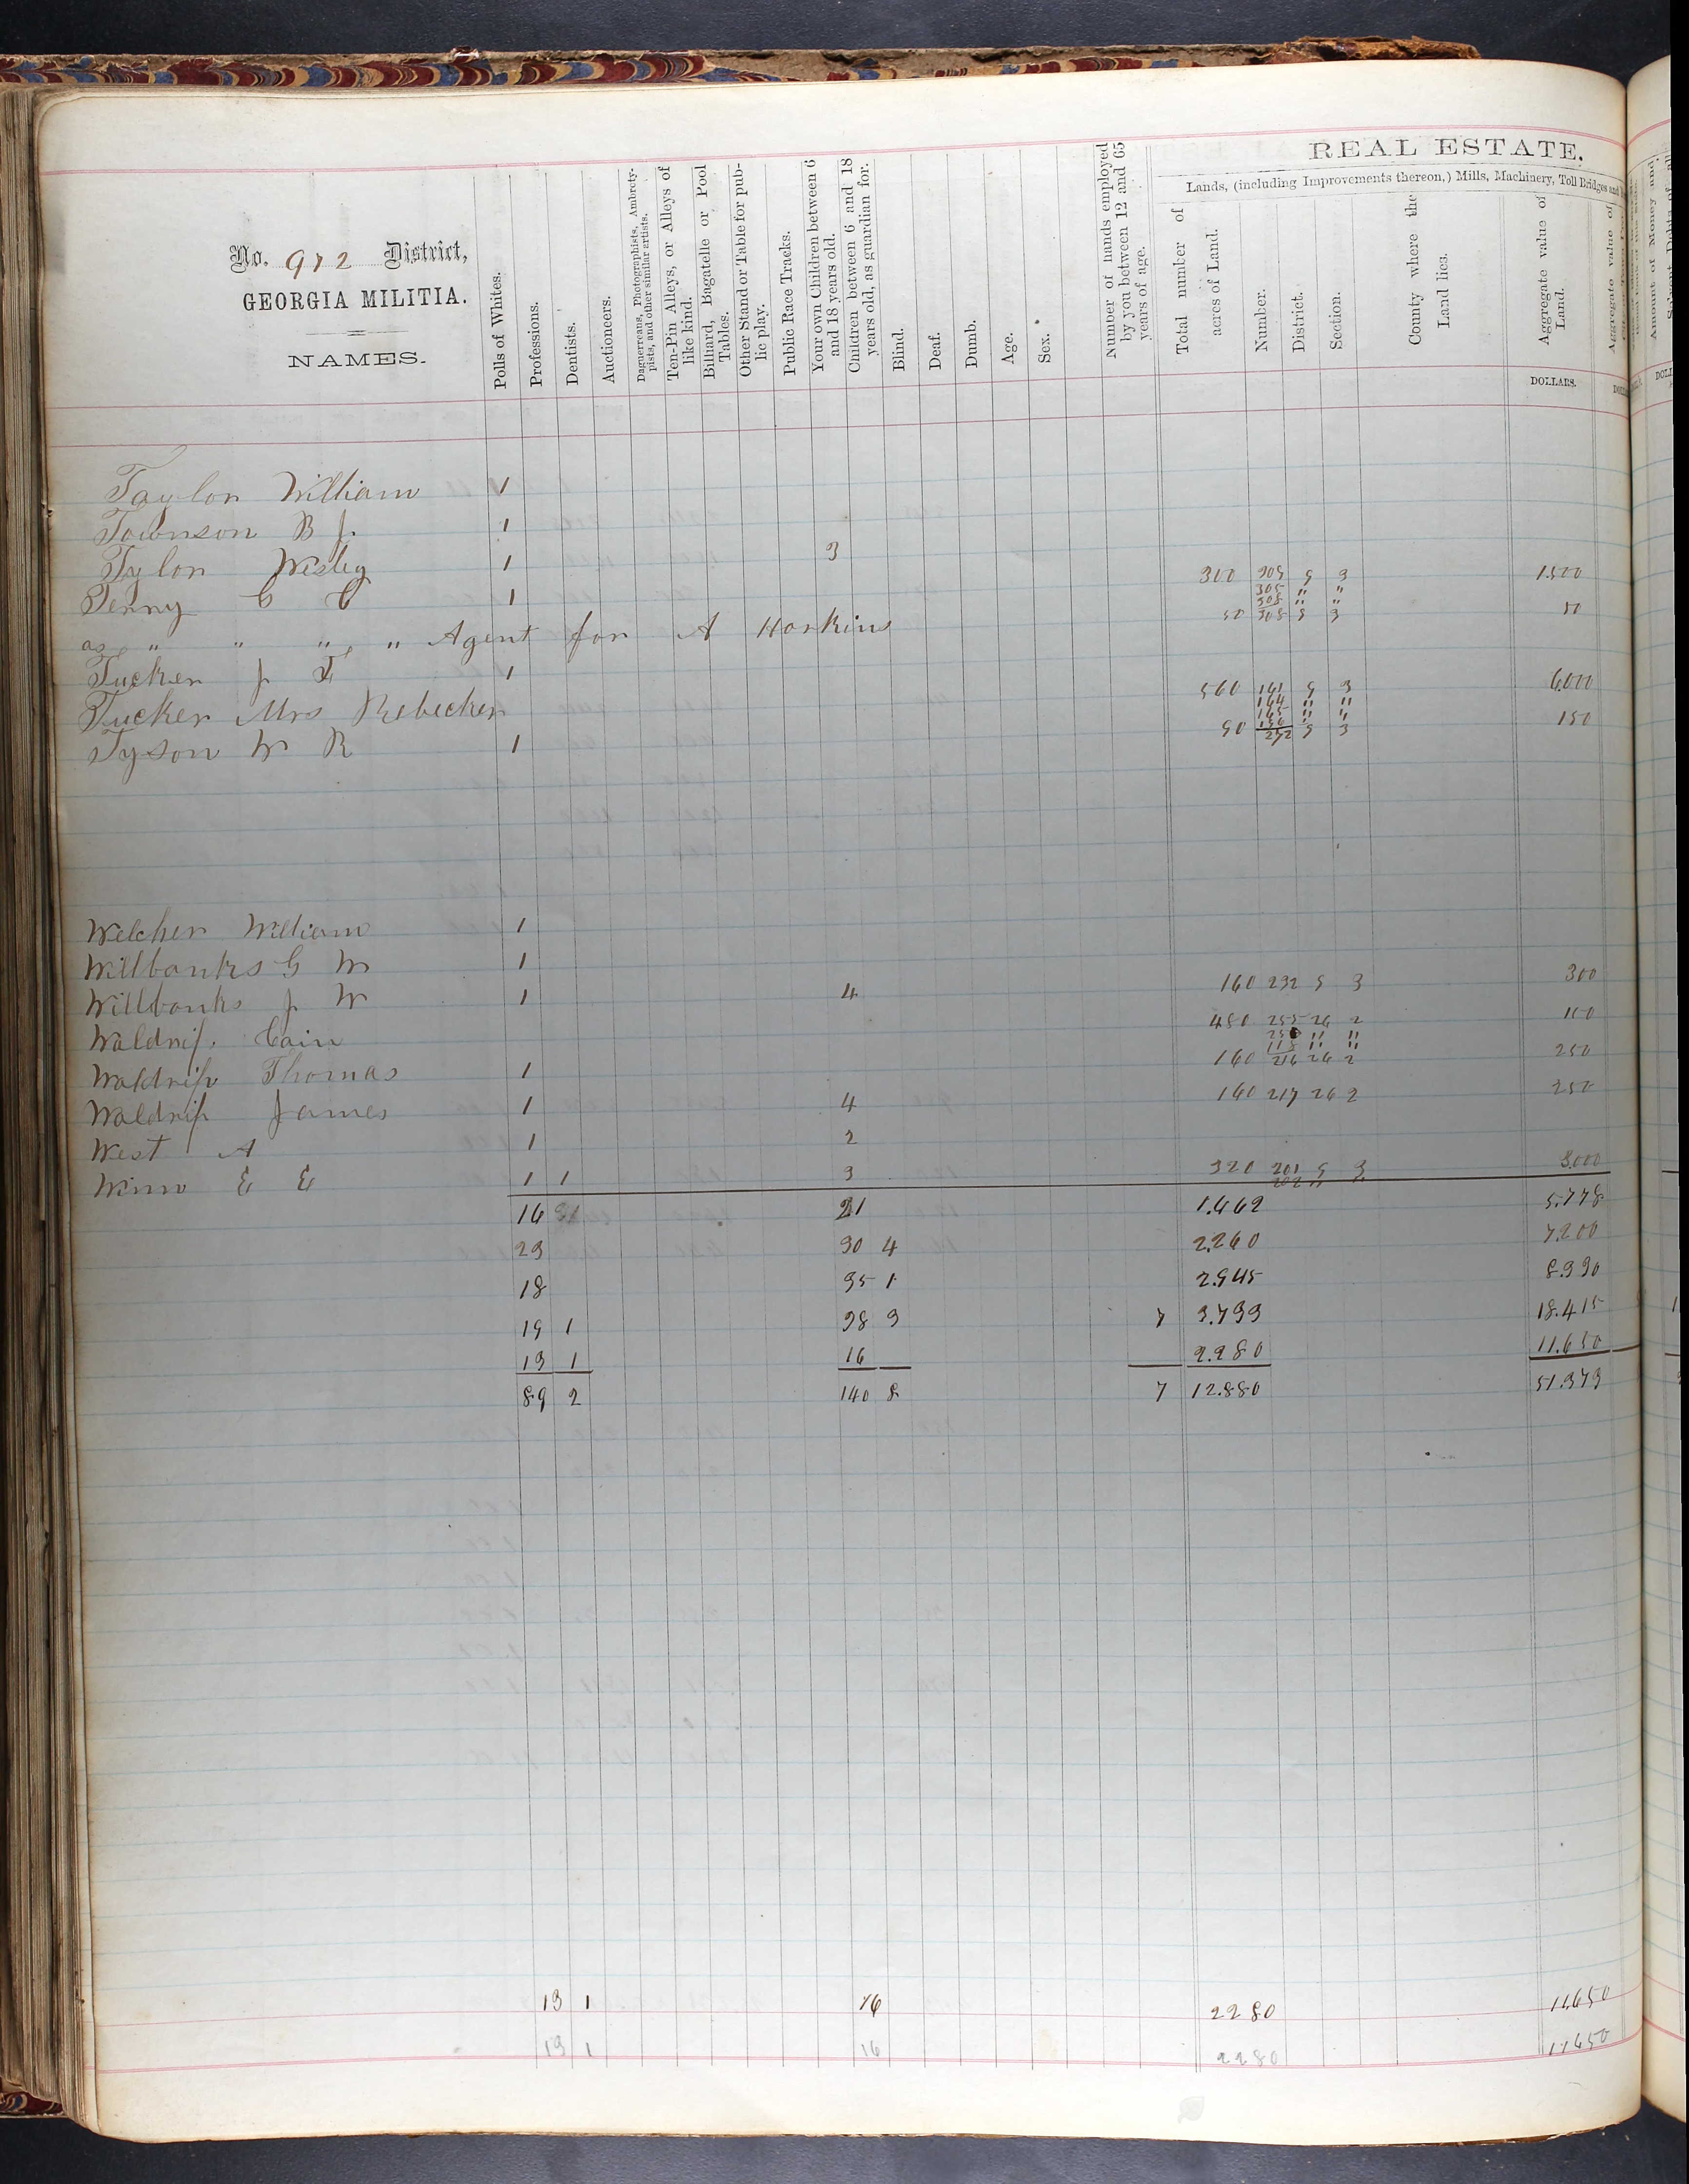 REAL ESTATE.
Lands, (including Improvements thereon,) Mills, Machinery, Toll Bridges and
No. 972 District,
GEORGIA MILITIA.
NAMES.
Polls of Whites.
Professions.
Dentists.
Auctioneers.
Daguerreans, Photographists, Ambroty-
pists, and other similar artists.
Ten-Pin Alleys, or Alleys of
like kind.
Billiard, Bagatelle or Pool
Tables.
Other Stand or Table for pub-
lic play.
Public Race Tracks.
Your own Children between 6
and 18 years old.
Children between 6 and 18
years old, as guardian for.
Blind.
Deaf.
Dumb.
Age.
Sex.
Number of hands employed
by you between 12 and 65
years of age.
Total number of
acres of Land.
Number.
District.
Section.
County where the
Land lies.
Aggregate value of
Land.
DOLLARS.
Taylor William 1
Townson B J 1
Tylor Wesley 1 3
Tenny C C 1 300 309 9 3 1.500
305 " "
308 " "
as " " " " Agent for A Harkins 50 308 9 3 50
Tucker J T 1
Tucker Mrs Rebecker 560 161 9 3 6.000
164 " "
165 " "
Tyson W R 1 90 292 9 3 150
Welcher William 1
Willbanks G W 1
Willbanks J W 1 4 160 232 9 3 300
Waldrip Cain 480 255 26 2 100
" "
" "
Waldrip Thomas 1 160 216 26 2 250
Waldrip James 1 4 160 217 26 2 250
West A 1 2
Winn E E 1 1 3 320 201 9 3 3.000
16 21 1.462 5.778
23 30 4 2.260 7.200
18 35 1 2.945 8.330
19 1 38 3 7 3.733 18.415
13 1 16 2.280 11.650
89 2 140 8 7 12.880 51.373
13 1 16 2280 11.650
13 1 16 2280 11650